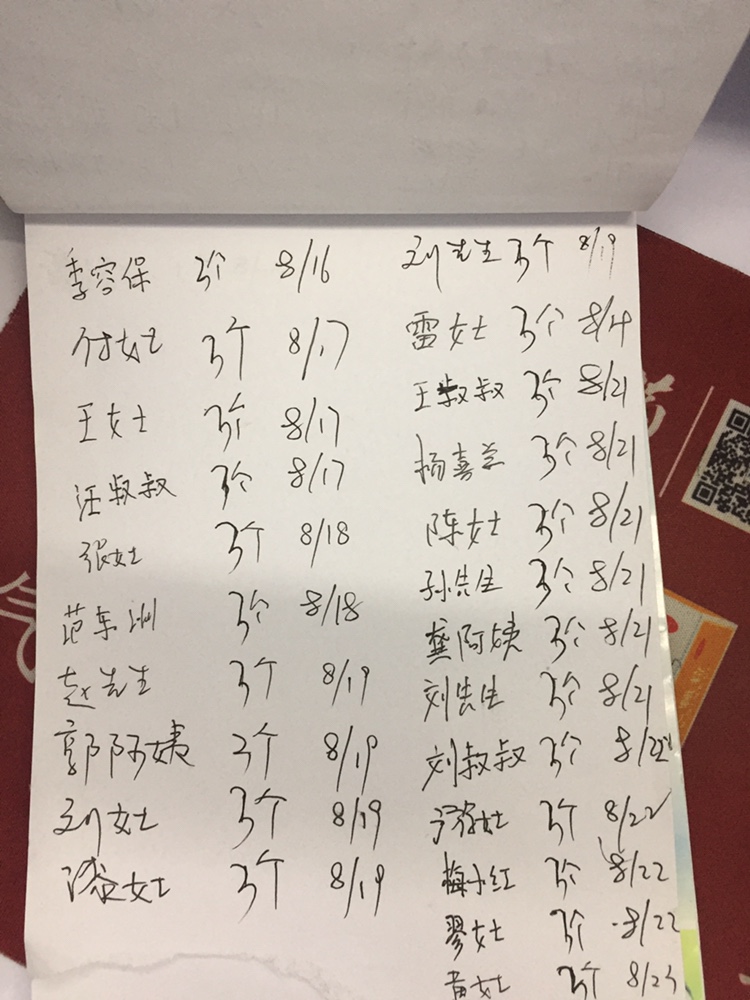 李容保 3个 8/16
付女士 3个 8/17
王女士 3个 8/17
汪叔叔 3个 8/17
张女士 3个 8/18
范东洲 3个 8/18
赵先生 3个 8/19
郭阿姨 3个 8/19
刘女士 3个 8/19
女士 3个 8/19
刘先生 3个 8/19
雷女士 3个 8/19
王叔叔 3个 8/21
杨喜兰 3个 8/21
陈女士 3个 8/21
孙先生 3个 8/21
龚阿姨 3个 8/21
刘先生 3个 8/21
刘叔叔 3个 8/22
女士 3个 8/22
梅小红 3个 8/22
廖女士 3个 8/22
黄女士 3个 8/23